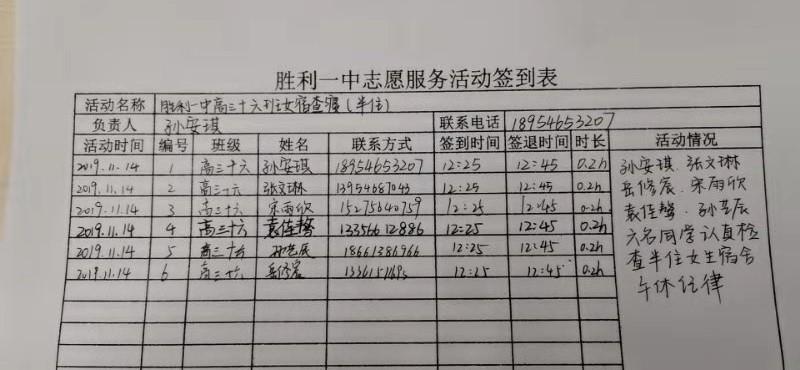 胜利一中志愿服务活动签到表
活动名称 胜利一中高三十六班女宿查寝(半住)
负责人 孙安琪 联系电话 18954653207
活动时间 编号 班级 姓名 联系方式 签到时间 签退时间 时长 活动情况
2019.11.14 1 高三十六 孙安琪 18954653207 12:25 12:45 0.2h
2019.11.14 2 高三十六 张文琳 13954687043 12:25 12:45 0.2h
2019.11.14 3 高三十六 宋雨欣 15275640759 12:25 12:45 0.2h
2019.11.14 4 高三十六 袁佳馨 13356612886 12:25 12:45 0.2h
2019.11.14 5 高三十六 孙艺辰 18661386966 12:25 12:45 0.2h
2019.11.14 6 高三十六 岳修宸 12:25 12:45 0.2h
孙安琪、张文琳
岳修宸、宋雨欣
袁佳馨、孙艺辰
六名同学认真检
查半住女生宿舍
午休纪律